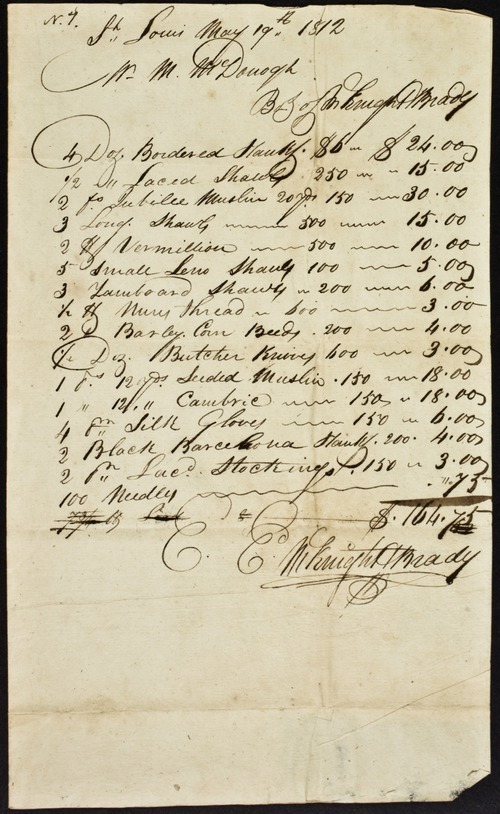 N. 7.
St. Louis May 19th 1812
Wm. M. McDonogh
Bot of McKnight & Brady
4 Doz. Bordered Hankfs. $6 " $24.00
1/2 " Laced Shawls 250 " " 15.00
2 ps Jubilee Muslin 20 yds. 150 30.00
3 Long Shawls 500 15.00
2 lb Vermillion 500 10.00
5 Small Leno Shawls 100 5.00
3 Tamboard Shawls " 200 6.00
1/2 lb Nuns Thread " 600 3.00
2 lb Barley Corn Beeds. 200 4.00
1/2 Doz. Butcher Knives 600 3.00
1 ps. 12 yds. Seeded Muslin. 150 18.00
1 " 12 " Cambric 150 " 18.00
4 pr Silk Gloves 150 " 6.00
2 Black Barcelona Hankfs. 200. 4.00
2 pr Lacd. Stockings. 150 " 3.00
100 Needles " .75
$. 164.75
E. Ed.
McKnight & Brady